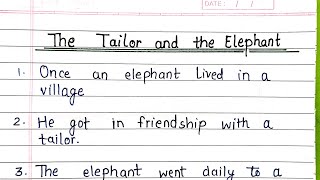 DATE: / /
The Tailor and the Elephant
1. Once an elephant Lived in a
village
2. He got in friendship with a
tailor.
3. The elephant went daily to a